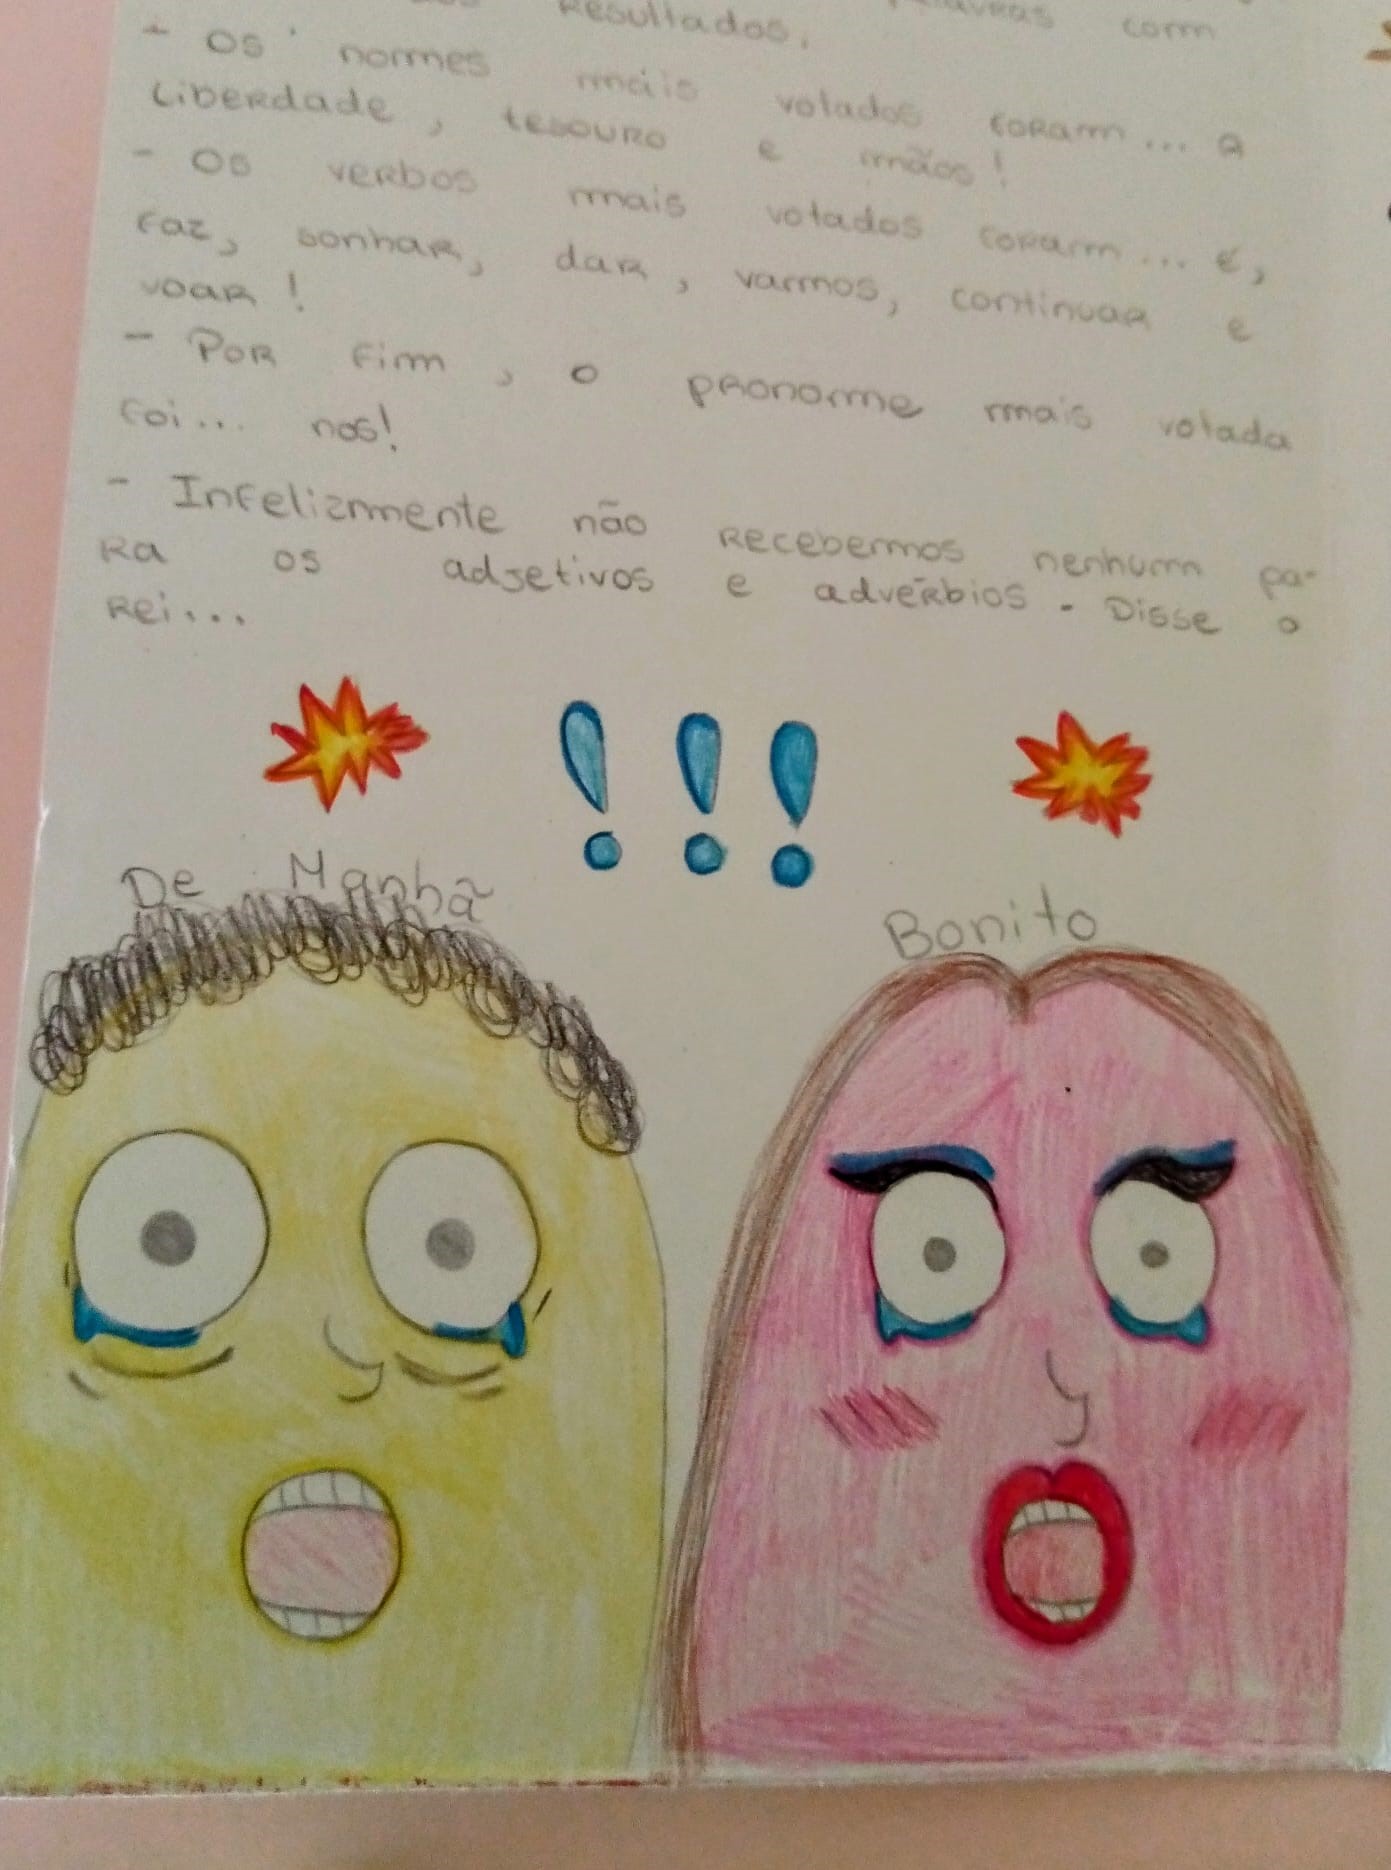 Resultados. com
- Os nomes mais volados foram... a
Liberdade, tesouro e mãos!
- Os verbos mais votados foram... é,
Faz, sonhar, dar, varmos, continuar e
voar!
- Por fim, o pronome mais volada
foi... nos!
- Infelizmente não recebermos nenhum pa-
ra os adjetivos e advérbios. Disse o
Rei...
! ! !
De Manhã
Bonito